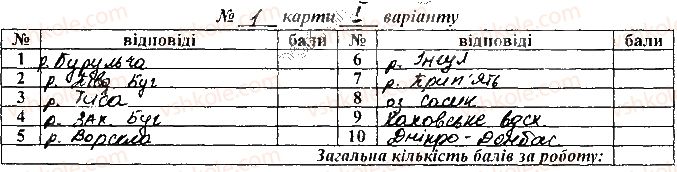 № 1 карти I варіанту
№ відповіді бали № відповіді бали
1 р. Бурульча 6 р. Інгул
2 р. Буг 7 р. Прип'ять
3 р. Тиса 8 оз Сасик
4 р. Зах. Буг 9 Каховське вдсх.
5 р. Ворскла 10 Дніпро-Донбас
Загальна кількість балів за роботу: